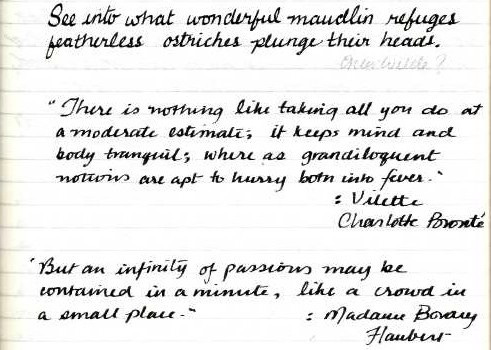 See into what wonderful maudlin refuges
featherless ostriches plunge their heads.
Oscar Wilde?
"There is nothing like taking all you do at
a moderate estimate; it keeps mind and
body tranquil; where as grandiloquent
notions are apt to hurry both into fever."
: Vilette
Charlotte Brontë
"But an infinity of passions may be
contained in a minute, like a crowd in
a small place."
: Madame Bovary
Flaubert